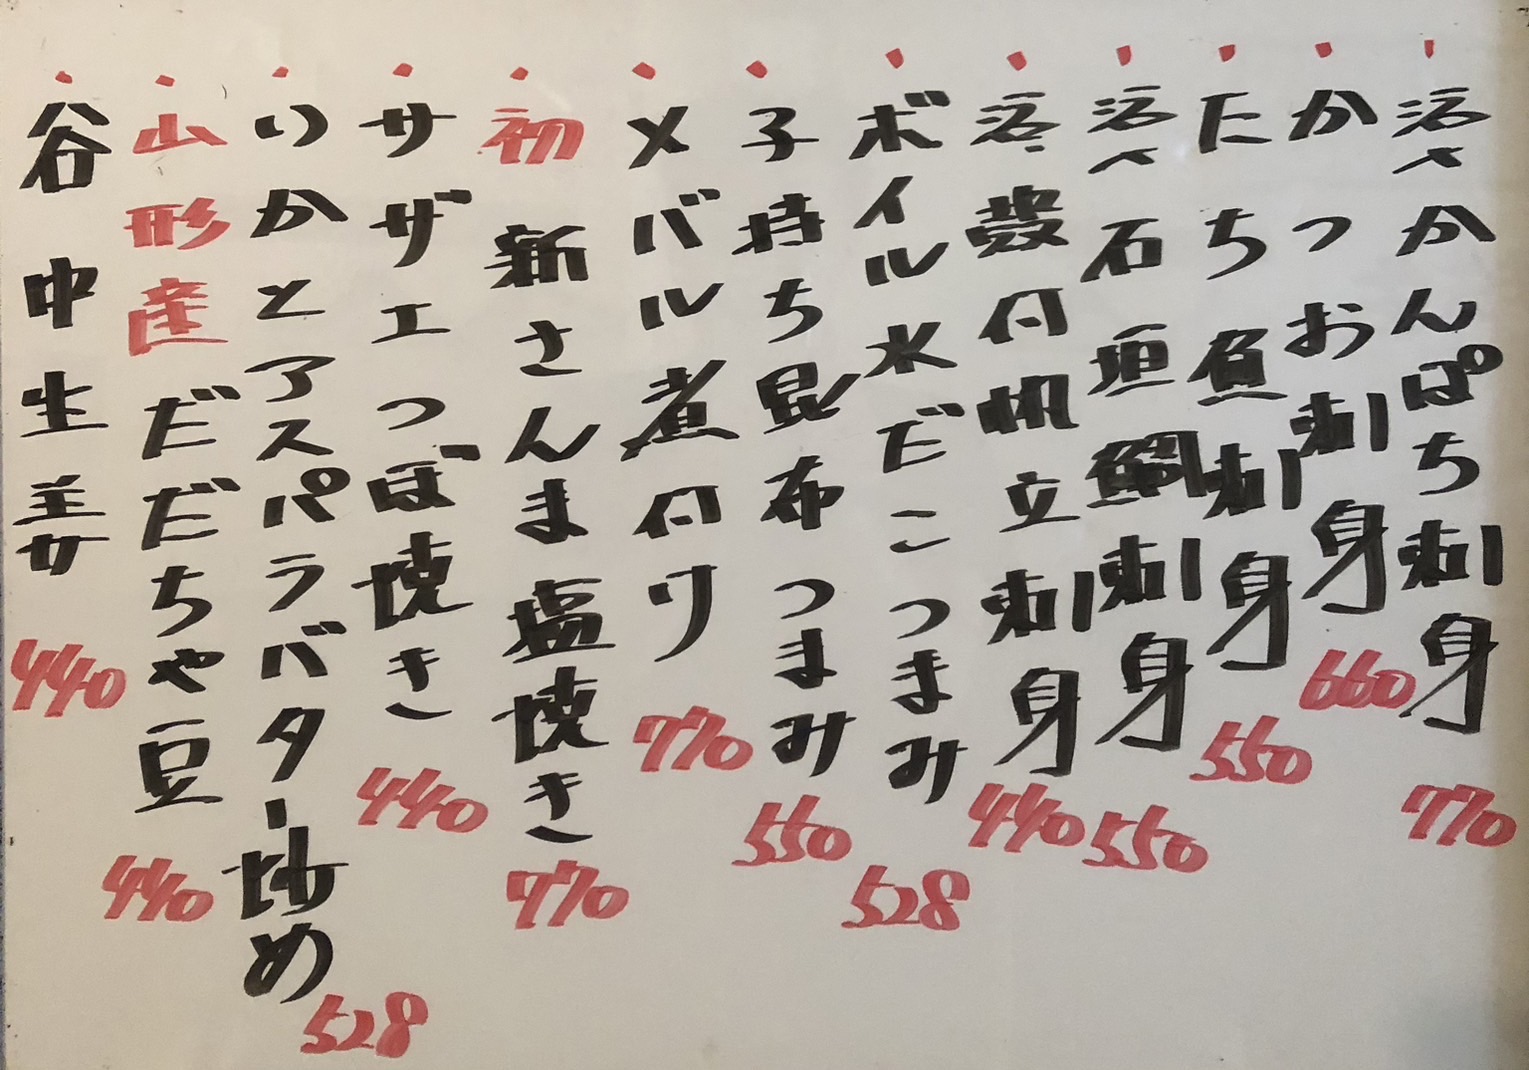 活〆かんぱち刺身 770
かつお刺身 660
たち魚刺身 550
活〆石垣鯛刺身 550
活殻付帆立刺身 440
ボイル水だこつまみ 528
子持ち昆布つまみ 550
メバル煮付け 770
初新さんま塩焼き 770
サザエつぼ焼き 440
いかとアスパラバター炒め 528
山形産だだちゃ豆 440
谷中生姜 440